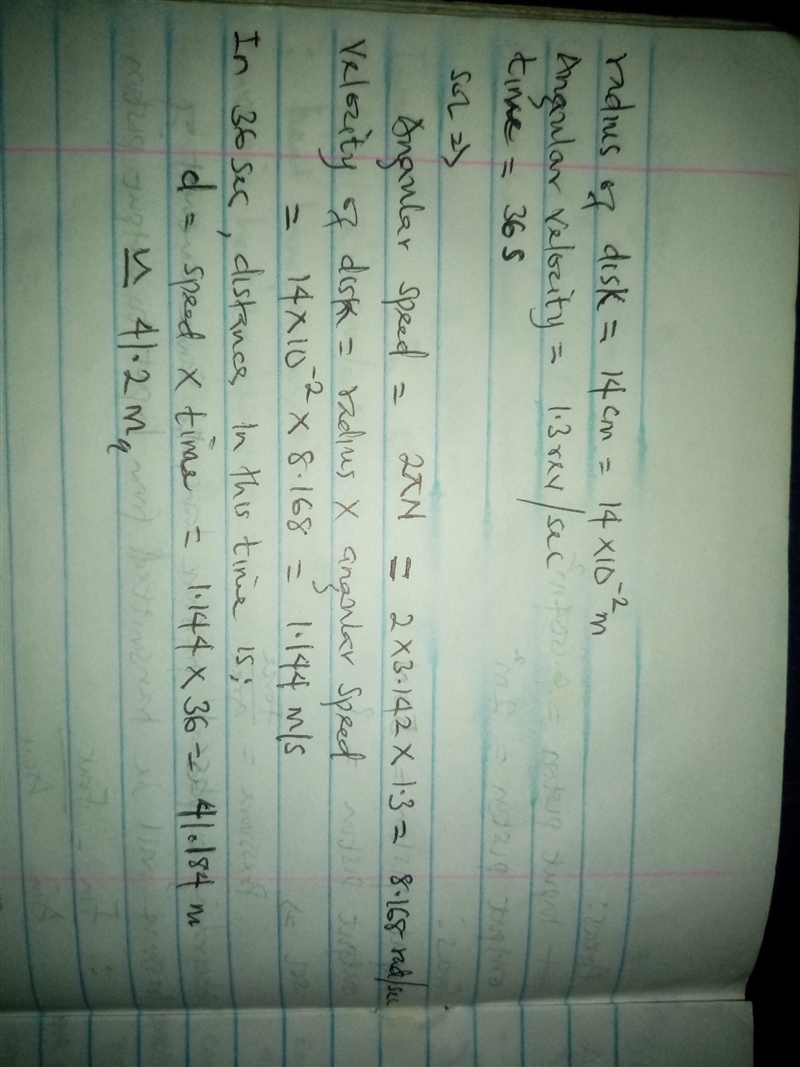 radius of disk = 14 cm = 14 × 10⁻² m
Angular velocity = 1.3 rev/sec
time = 36 s
Sol ⇒
Angular speed = 2πN = 2 × 3.142 × 1.3 = 8.168 rad/sec
Velocity of disk = radius × angular speed
= 14 × 10⁻² × 8.168 = 1.144 m/s
In 36 sec, distance in this time is;
d = speed × time = 1.144 × 36 = 41.184 m
≃ 41.2 m